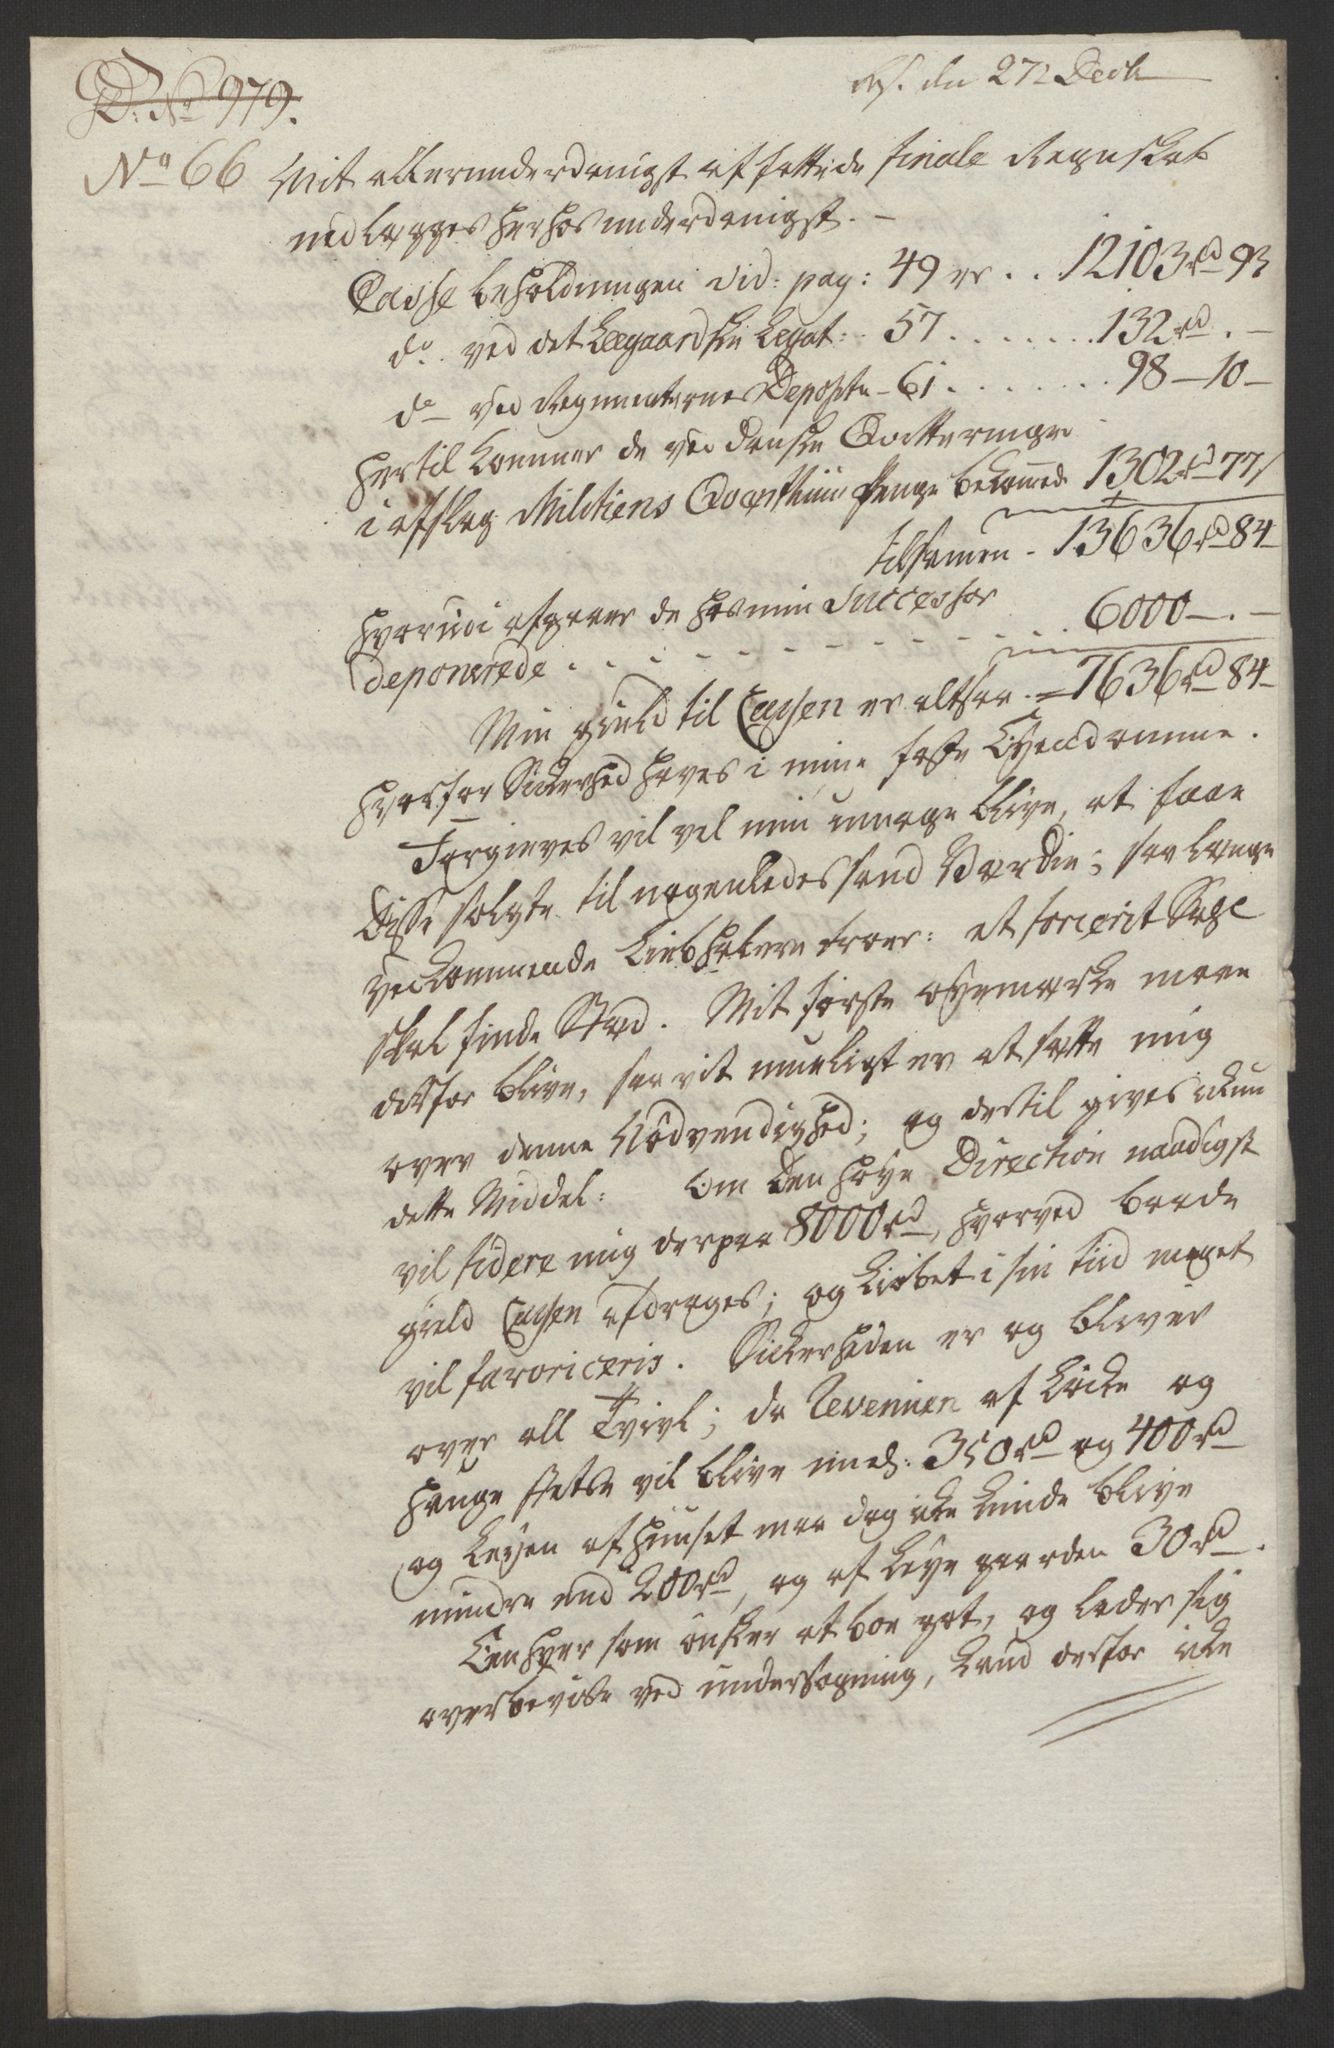 D. No 979.
No 66
Rs. den 27 Decbr
Mit allerunderdanigst afsattede finale Regnskab
nedlægges herhos underdanigst. -
Casse beholdningen vid: pag: 49 er . . 12103rd 93
do ved det Leegaardske Legat: 57 . . . . . . . 132rd . -
do - ved Regimenternes Deposita - 61 . . . . . . . . 98 - 10 -
hertil kommer de ved danske Qvitteringer
i afslag Militiens Penge bekomne 1302rd 77/
tilsamen - 13636rd 84 -
hvorudi afgaaer de hos min Successor
deponerede . . . . . . . . . . . . 6000 - . -
Min gield til Cassen er altsaa - = 7636rd 84 -
hvorfor Sickerhed haves i mine faste Eyendomme.
Forgieves vil vel min umage blive, at faae
disse solgte til nogenledes sand Værdie; saa længe
vedkommende Liebhabere troer: et forcerit Salg
skal finde Stæd. Mit første øyemærke maae
derfor blive, saa vit mueligt er at sætte mig
over denne Nødvendighed; og dertil gives ikkun
dette Middel: Om den høye Direction naadigst
vil fidere mig derpaa 8000rd, hvorved baade
gield Cassen afdrages; og Kiøbet i sin tiid meget
vil favoriceris. Sickerheden er og bliver
over all Tvivl; da Revenuen af Løcke og
Hauge stetse vil blive imel: 350rd og 400rd
og Leyen af Huuset maa dog icke kunde blive
mindre end 200rd, og af Leye gaarden 30rd.
Enhver som ønsker at boe got, og lader sig
overbevise ved undersøgning, kand derfor icke